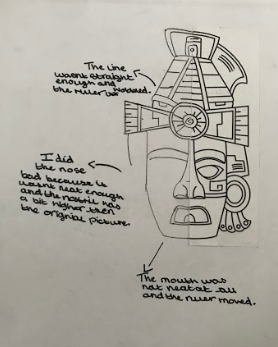 The line
wasnt straight
enough and
the ruler wobbled.
I did
the nose
bad because it
wasnt neat enough
and the nostril was
a bit higher then
the original picture.
The mouth was
not neat at all
and the ruler moved.